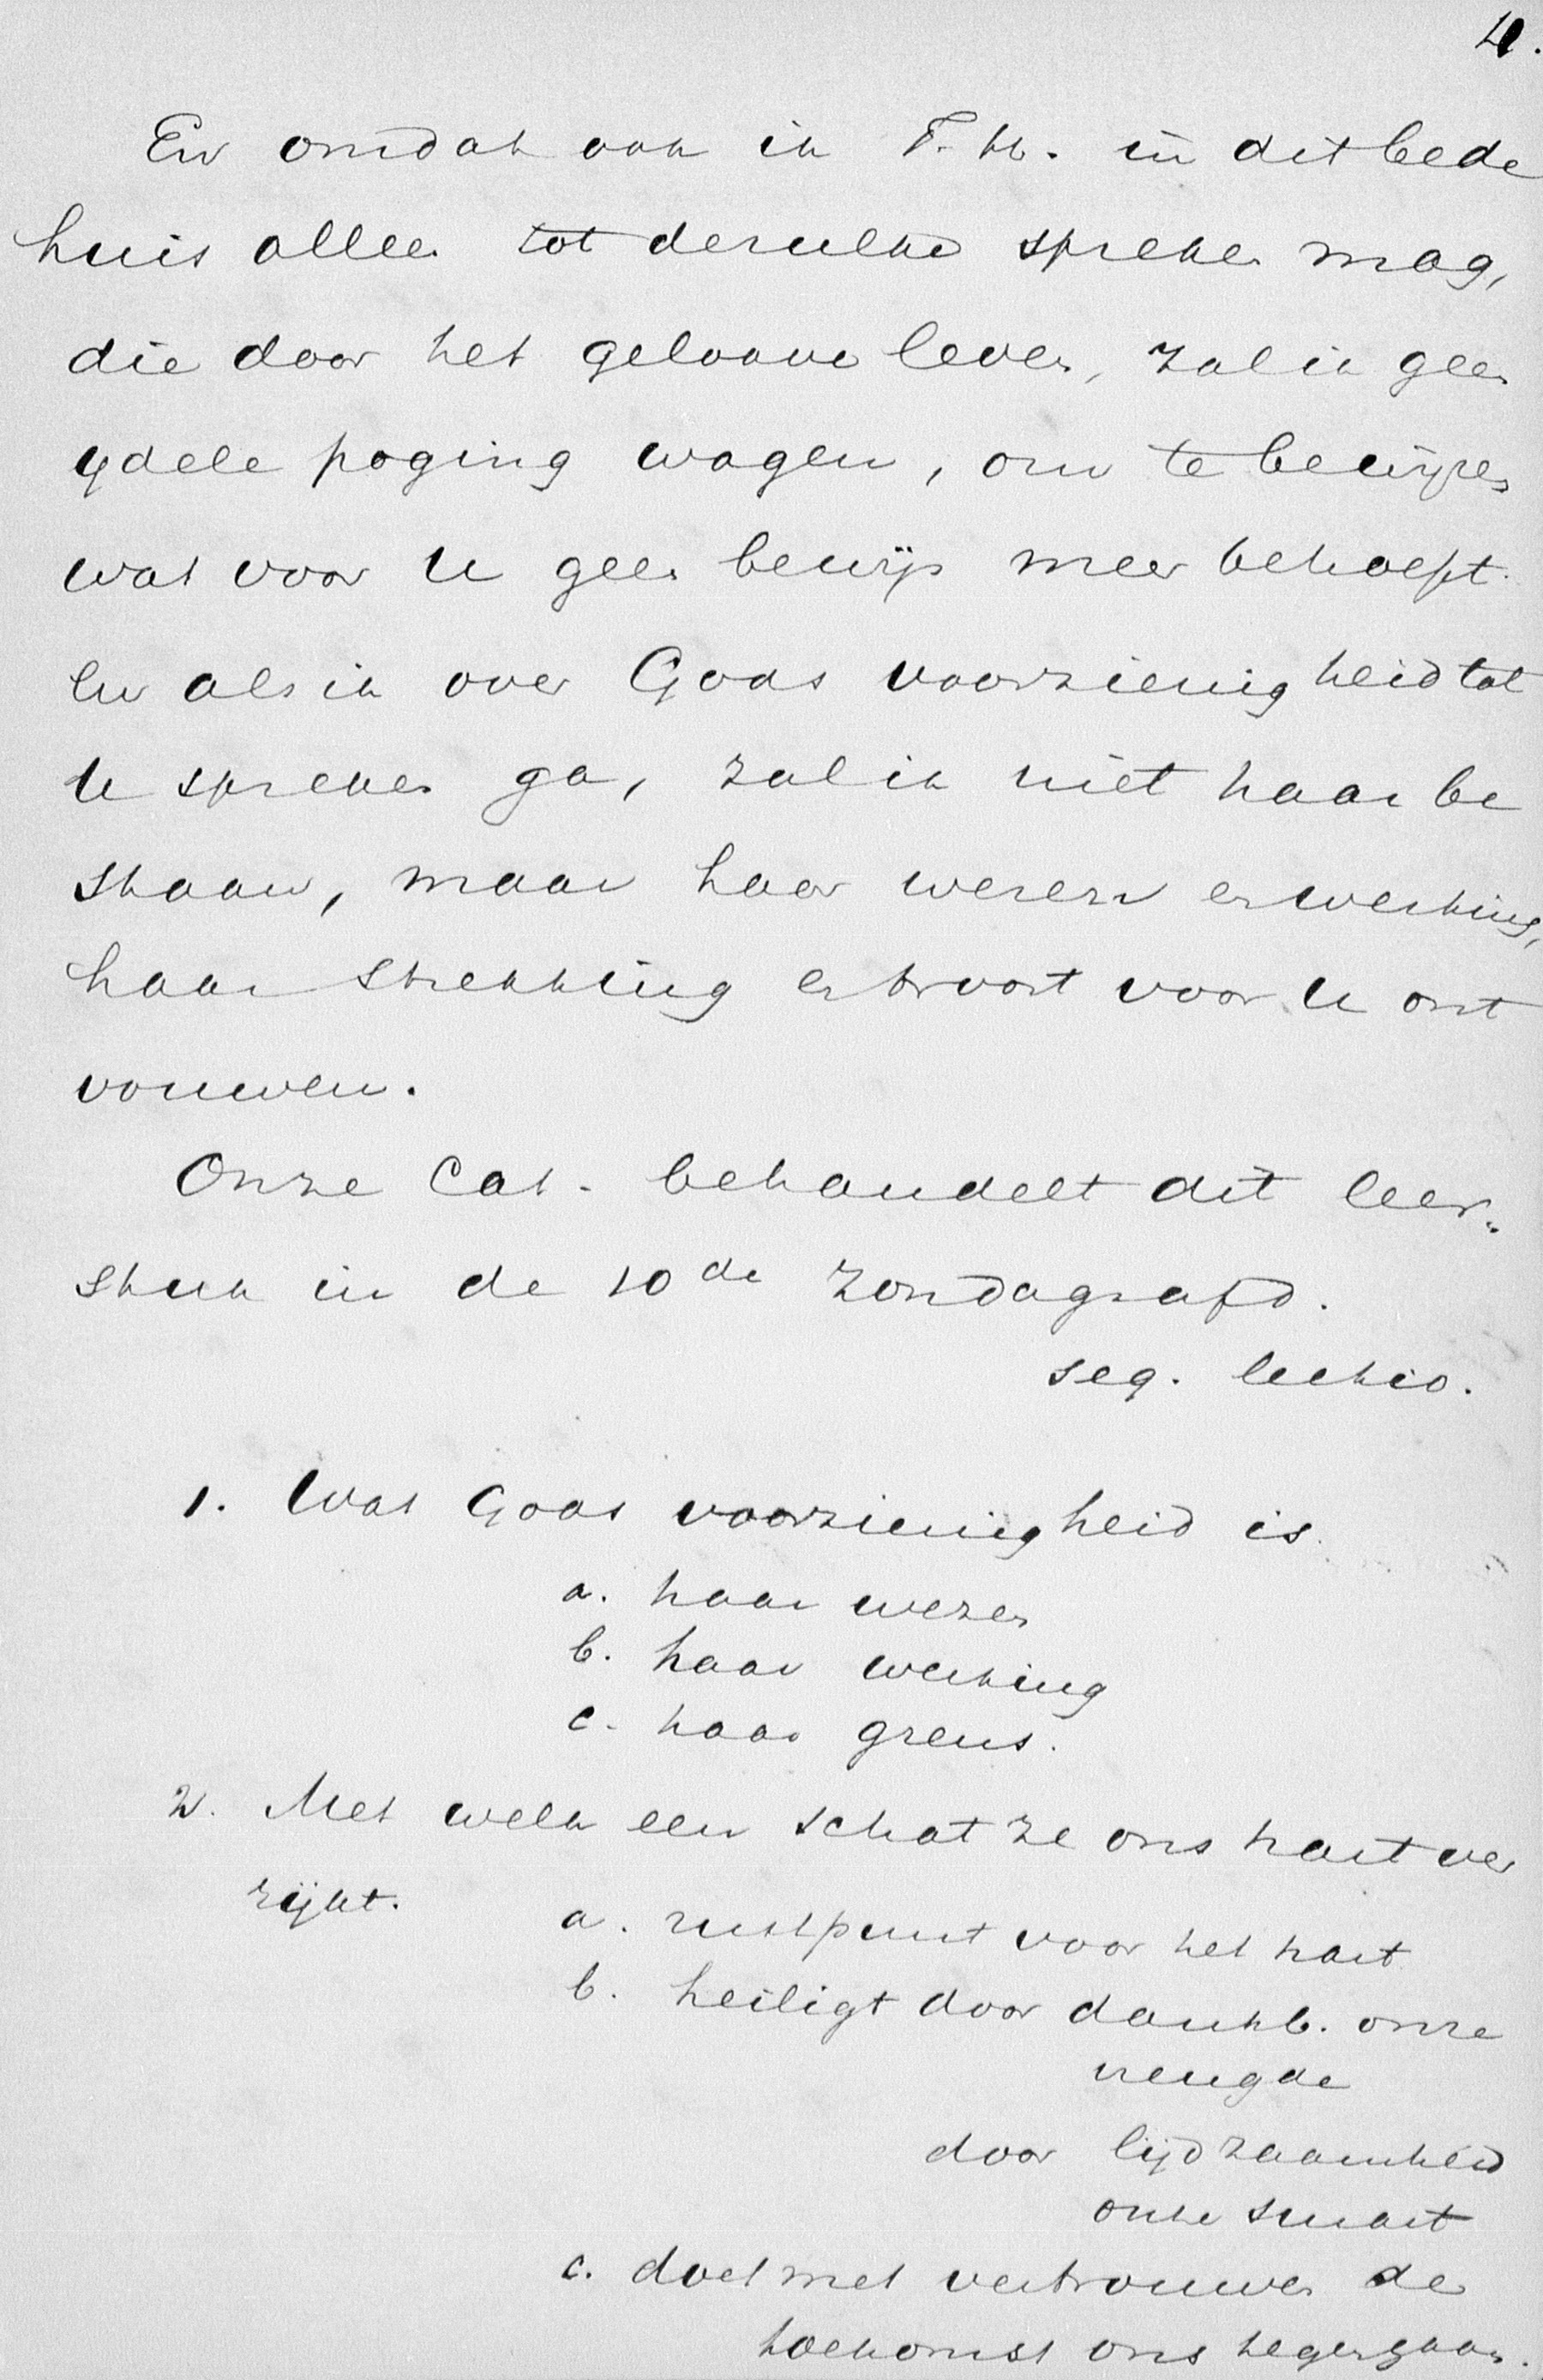 4.
En omdat ook ik T. H. in dit bede
huis alleen tot dezulken spreken mag,
die door het geloove leven, zal ik geen
ydele poging wagen, om te bewijzen
wat voor U geen bewijs meer behoeft.
En als ik over Gods voorzienigheid tot
U spreken ga, zal ik niet haar be
staan, maar haar wezen en werking,
haar strekking en troost voor U ont
vouwen.
Onze Cat. behandelt dit leer-
stuk in de 10de Zondagsafd.
seq. lectio.
1. Wat Gods voorzienigheid is.
a. haar wezen
b. haar werking
c. haar grens.
2. Met welk een schat ze ons hart ver
rijkt.
a. rustpunt voor het hart
b. heiligt door dankb. onze
vreugde
door lijdzaamheid
onze smart
c. doet met vertrouwen de
toekomst ons tegengaan.